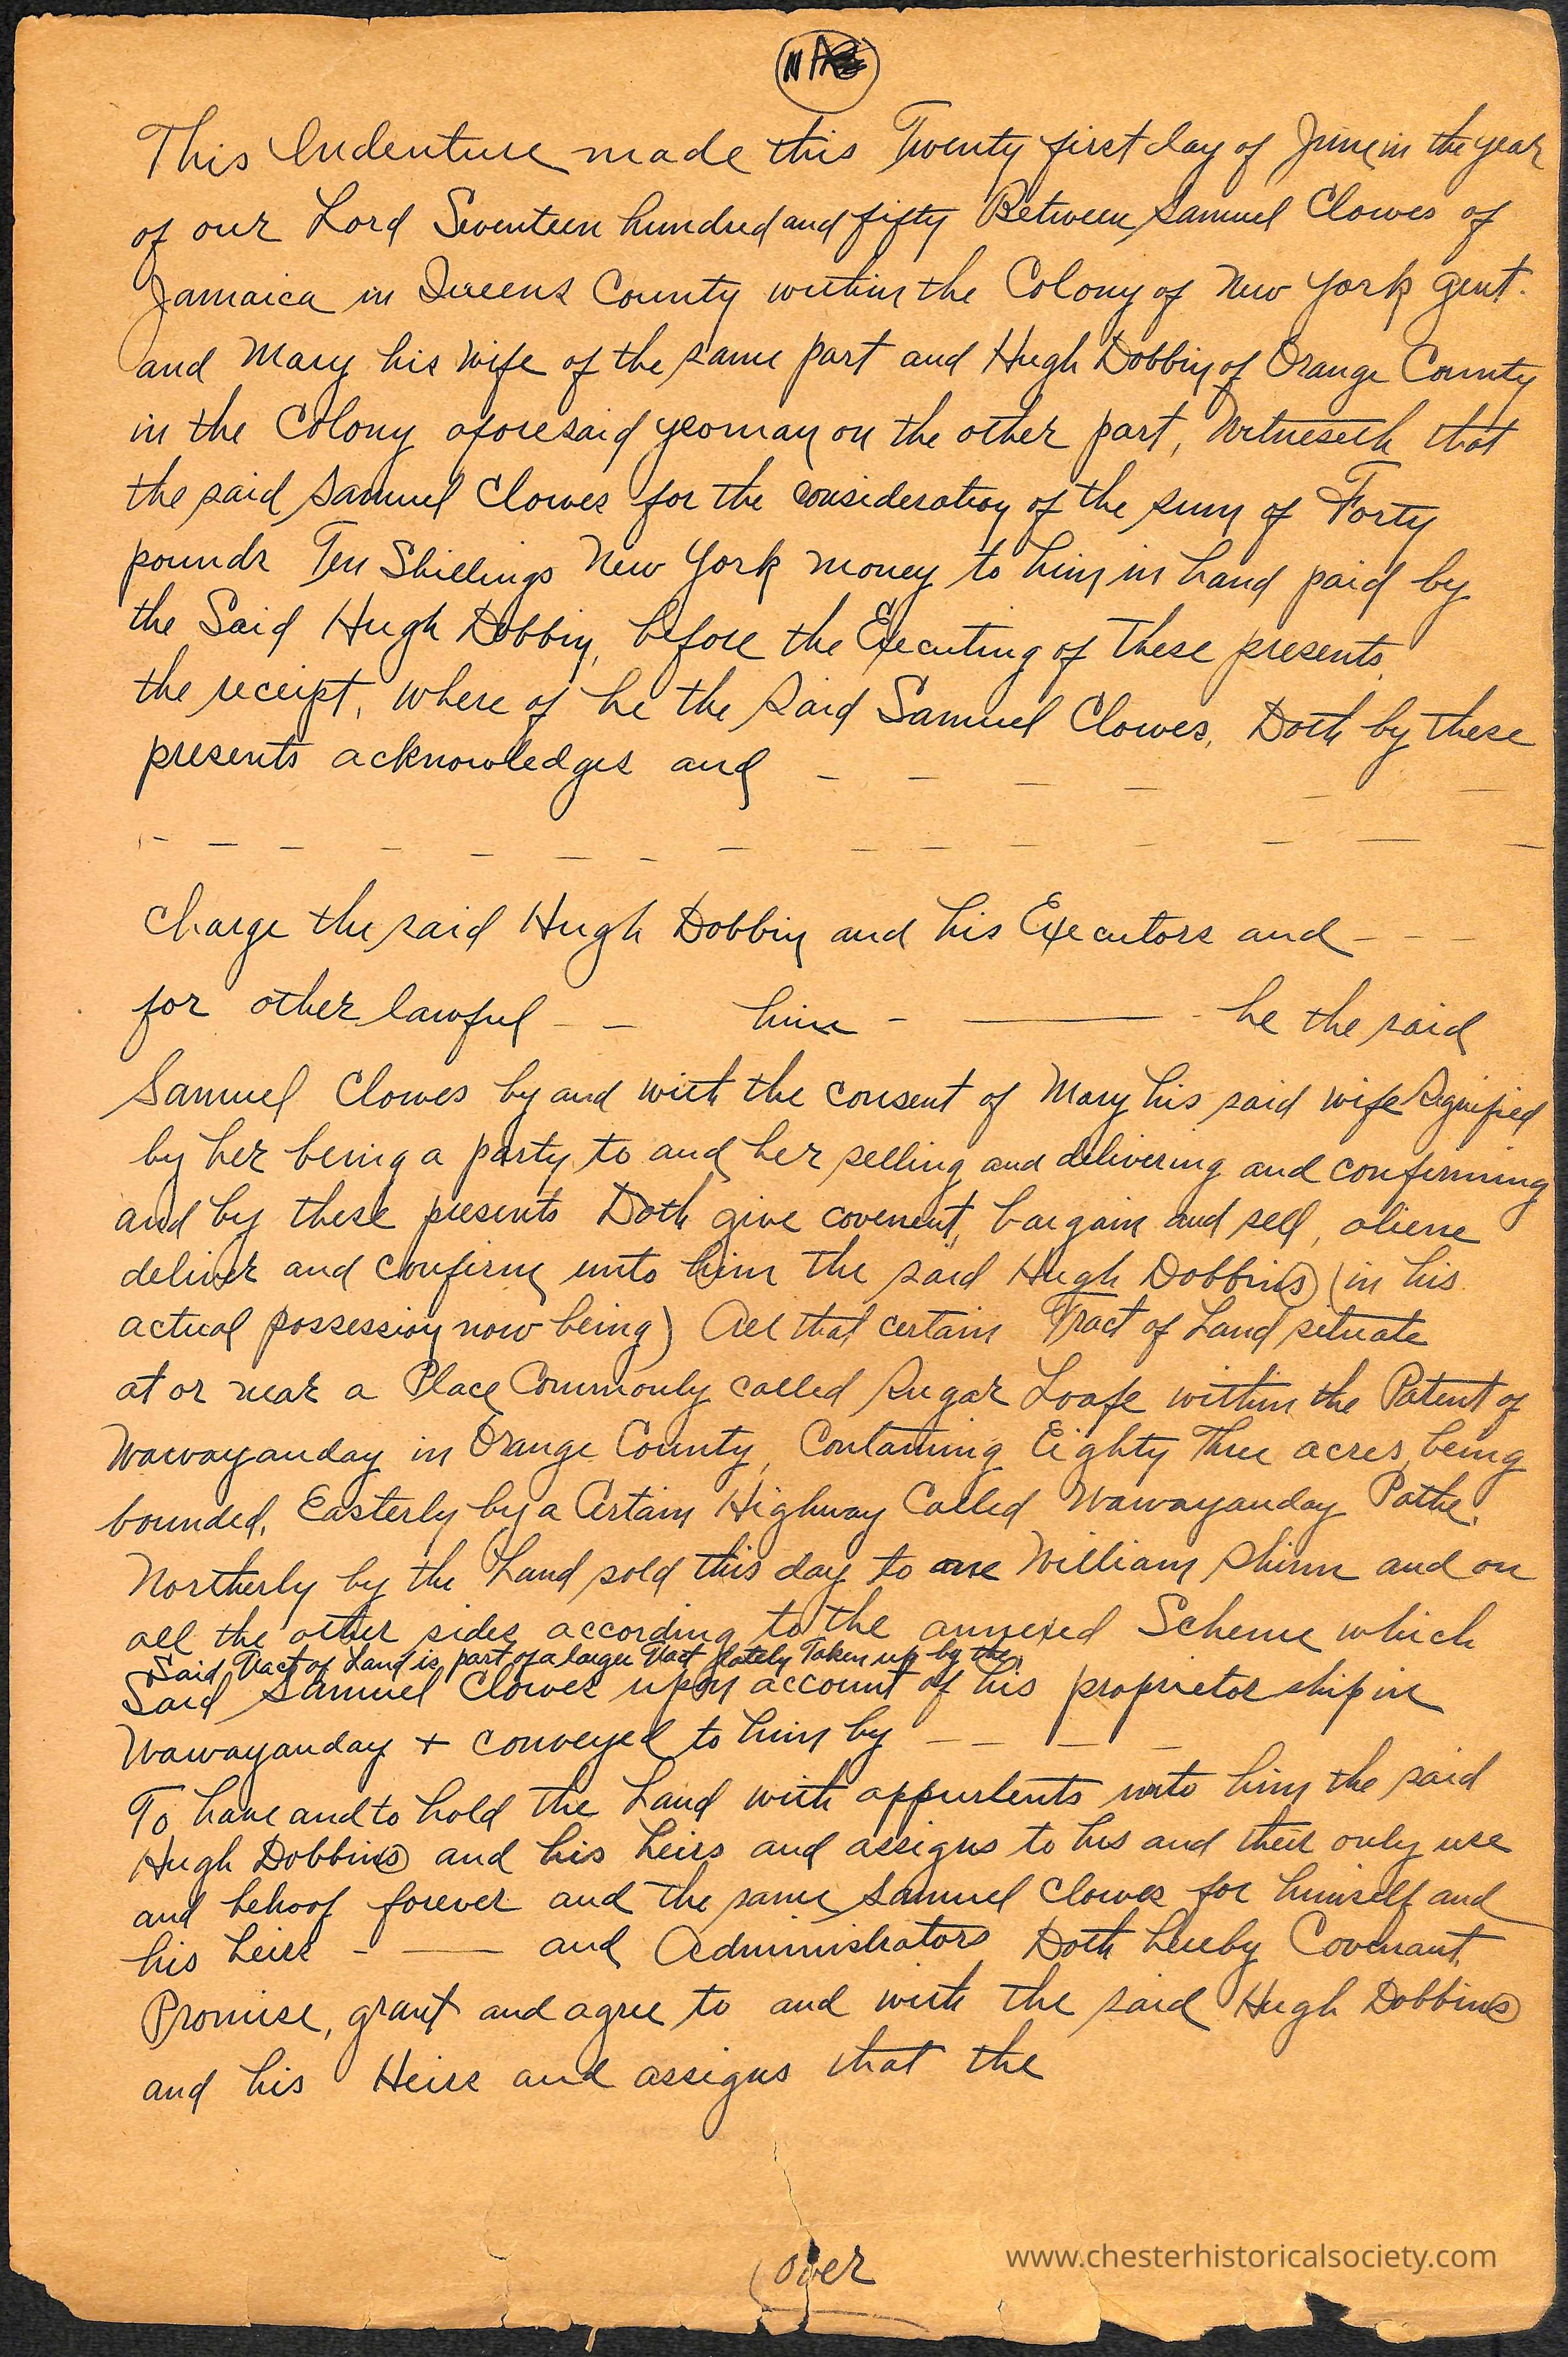 This Indenture made this Twenty first day of June in the year
of our Lord Seventeen hundred and fifty Between Samuel Clowes of
Jamaica in Queens County within the Colony of New York gent.
and Mary his wife of the same part and Hugh Dobbin of Orange County
in the Colony aforesaid yeoman on the other part, Witneseth that
the said Samuel Clowes for the consideration of the sum of Forty
pounds Ten Shillings New York money to him in hand paid by
the Said Hugh Dobbin, before the Executing of these presents,
the receipt, where of he the said Samuel Clowes, Doth by these
presents acknowledges and - - - - - -
- - - - - - - - - - - - - - -
Charge the said Hugh Dobbin and his Executors and - - -
for other lawful - - him - — - he the said
Samuel Clowes by and with the consent of Mary his said wife Signified
by her being a party to and her selling and delivering and confirming
and by these presents Doth give covenent, bargain and sell, aliene
deliver and confirm unto him the said Hugh Dobbins (in his
actual possession now being) All that certain Tract of Land situate
at or near a Place Commonly called Sugar Loafe within the Patent of
Wawayanday in Orange County, Containing Eighty Three acres being
bounded, Easterly by a Certain Highway Called Wawayanday Pathe.
Northerly by the Land sold this day to one William Shinn and on
all the other sides according to the annexed Scheme which
Said Tract of Land is part of a larger Tract lately Taken up by the
Said Samuel Clowes upon account of his proprietor ship in
Wawayanday + conveyed to him by - - - -
To have and to hold the Land with appurtents unto him the said
Hugh Dobbins and his heirs and assigns to his and their only use
and behoof forever and the same Samuel Clowes for himself and
his heirs - — and Administrators Doth hereby Covenant,
Promise, grant and agree to and with the said Hugh Dobbins
and his Heirs and assigns that the
(over
www.chesterhistoricalsociety.com